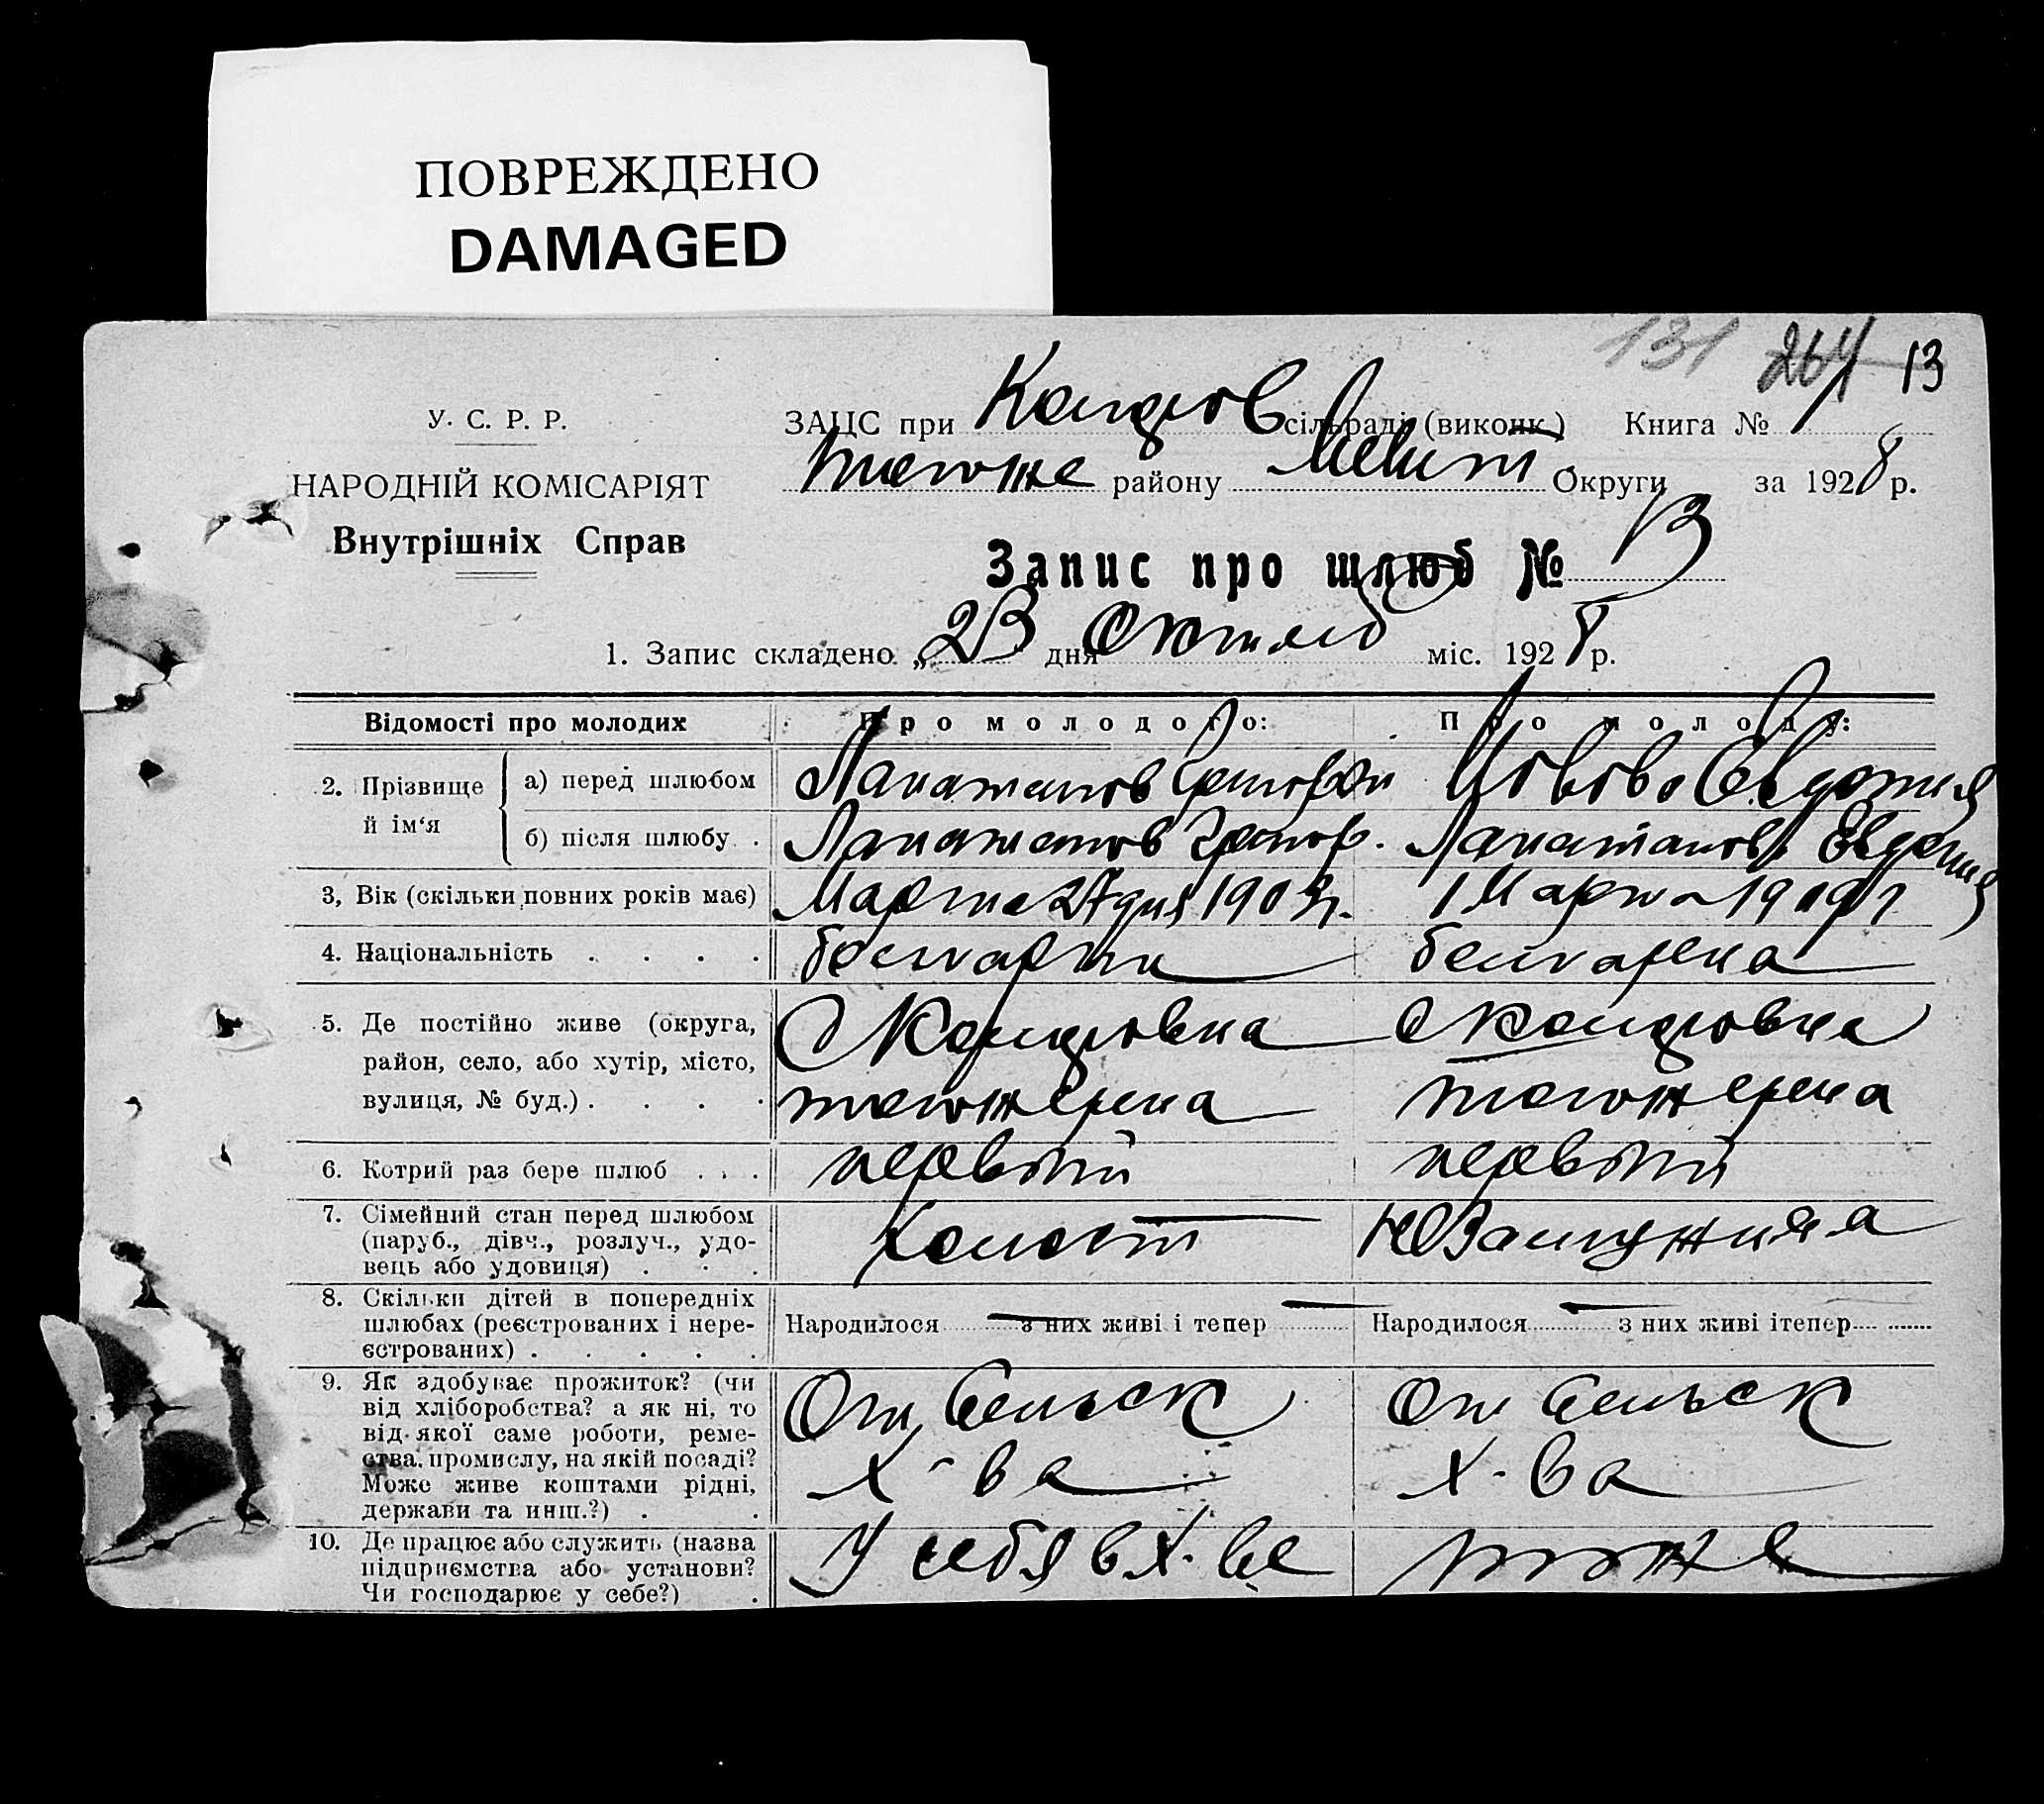 ПОВРЕЖДЕНО
DAMAGED
131 264 13
У. С. Р. Р.
НАРОДНІЙ КОМІСАРІЯТ
Внутрішніх Справ
ЗАЦС при сільраді (виконк.) Книга № 1
району Мелит Округи за 1928 р.
Запис про шлюб № 13
1. Запис складено „23 дня Октяб міс. 1928 р.
Відомості про молодих Про молодого: Про молоду:
2. Прізвище й ім‘я
а) перед шлюбом Григорий Евдотия
б) після шлюбу . Григор. Евдотия
3, Вік (скільки повних років має) Марта 27 дня 190 1 Марта 1909 г
4. Національність . . . . болгарин болгарка
5. Де постійно живе (округа,
район, село, або хутір, місто,
вулиця, № буд.) . . . .
6. Котрий раз бере шлюб . . . первый первый
7. Сімейний стан перед шлюбом
(паруб., дівч., розлуч., удо-
вець або удовиця) . . . Холост
8. Скільки дітей в попередніх
шлюбах (реєстрованих і нере-
єстрованих) . . . . .
Народилося — з них живі і тепер — Народилося — з них живі ітепер
9. Як здобуває прожиток? (чи
від хліборобства? а як ні, то
від якої саме роботи, реме-
ства, промислу, на якій посаді?
Може живе коштами рідні,
держави та инш.?) . .
От Сельск От Сельск
Х-ва Х-ва
10. Де працює або служить (назва
підприємства або установи?
Чи господарює у себе?) .
У себя в Х-ве тоже